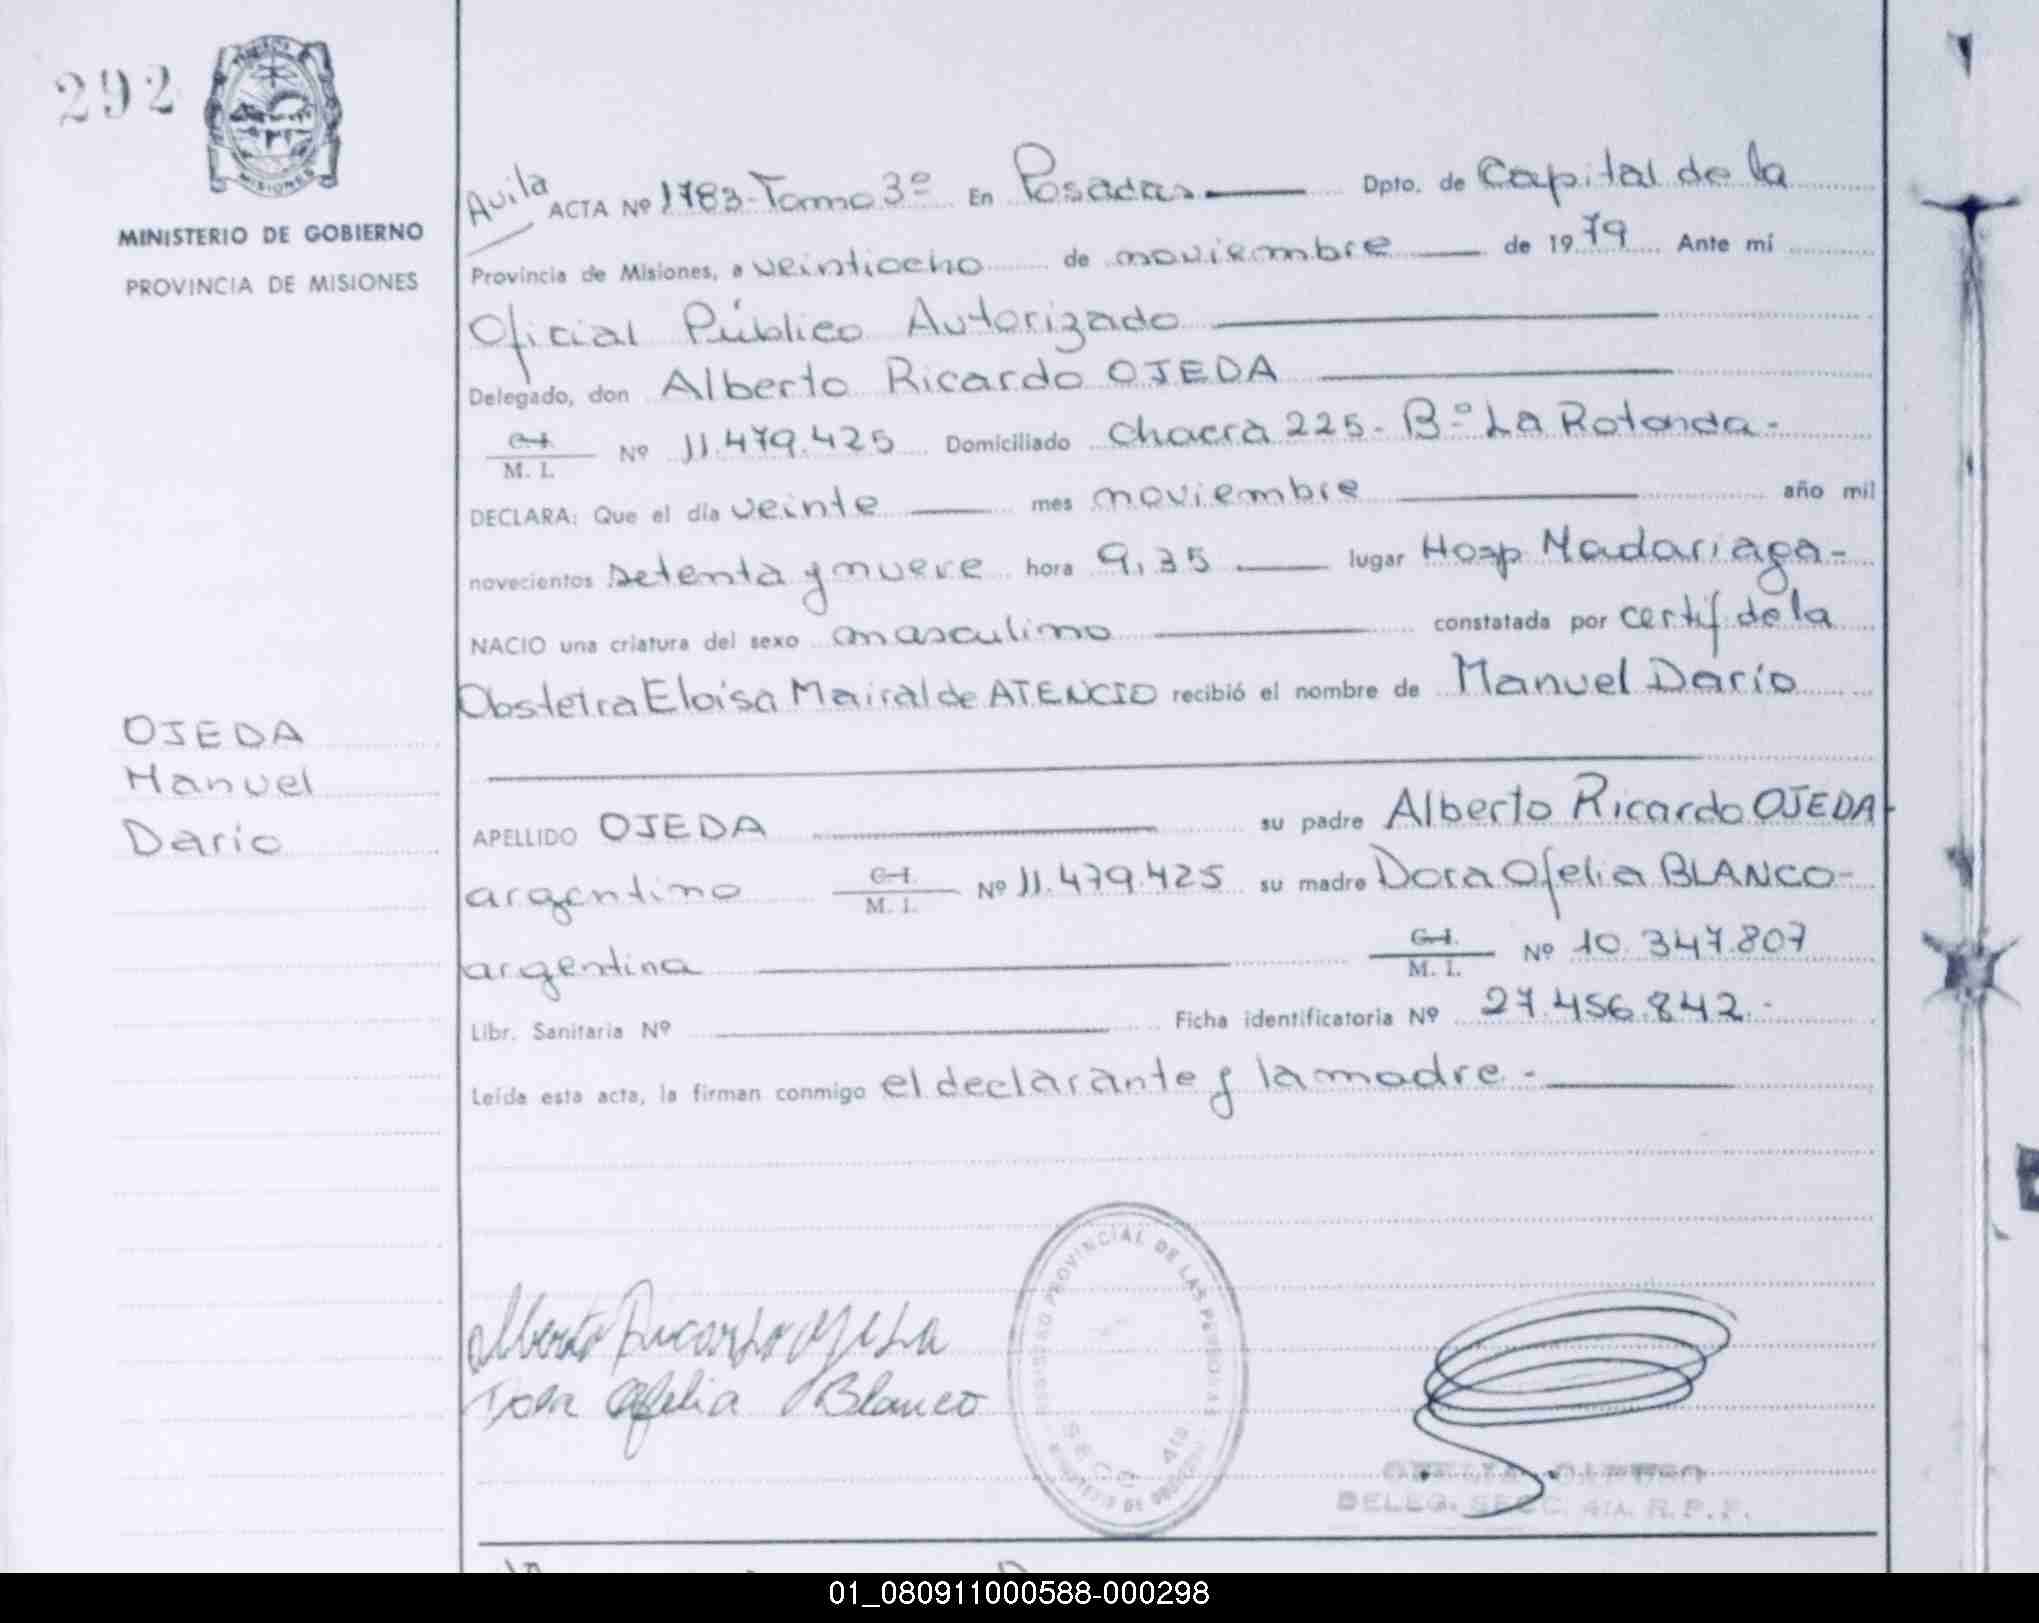 292
MISIONES
MINISTERIO DE GOBIERNO
PROVINCIA DE MISIONES
OJEDA
Manuel
Darío
Avila ACTA Nº 1783-Tomo 3º En Posadas Dpto. de Capital de la
Provincia de Misiones, a veintiocho de noviembre de 1979 Ante mí
Oficial Público Autorizado
Delegado, don Alberto Ricardo OJEDA
C.I. M. I. Nº 11.479.425 Domiciliado Chacra 225- Bº La Rotonda-
DECLARA: Que el día veinte mes noviembre año mil
novecientos setenta y nueve hora 9,35 lugar Hosp Madariaga-
NACIO una criatura del sexo masculino constatada por certif de la
Obstetra Eloisa Mairal de ATENCIO recibió el nombre de Manuel Darío
APELLIDO OJEDA su padre Alberto Ricardo OJEDA-
argentino C.I. M. I. Nº 11.479.425 su madre Dora Ofelia BLANCO-
argentina C.I. M. I. Nº 10.347.807
Libr. Sanitaria Nº Ficha identificatoria Nº 27.456.842.-
Leída esta acta, la firman conmigo el declarante y la madre.-
Alberto Ricardo Ojeda
Dora Ofelia Blanco
REGISTRO PROVINCIAL DE LAS PERSONAS
SECC. 4ta
MINISTERIO DE GOBIERNO
DELEG. SECC. 4ta. R.P.P.
01_080911000588-000298